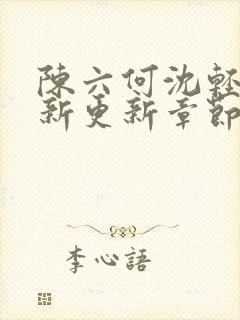 陳六何沈輕
新更新章節
李心語